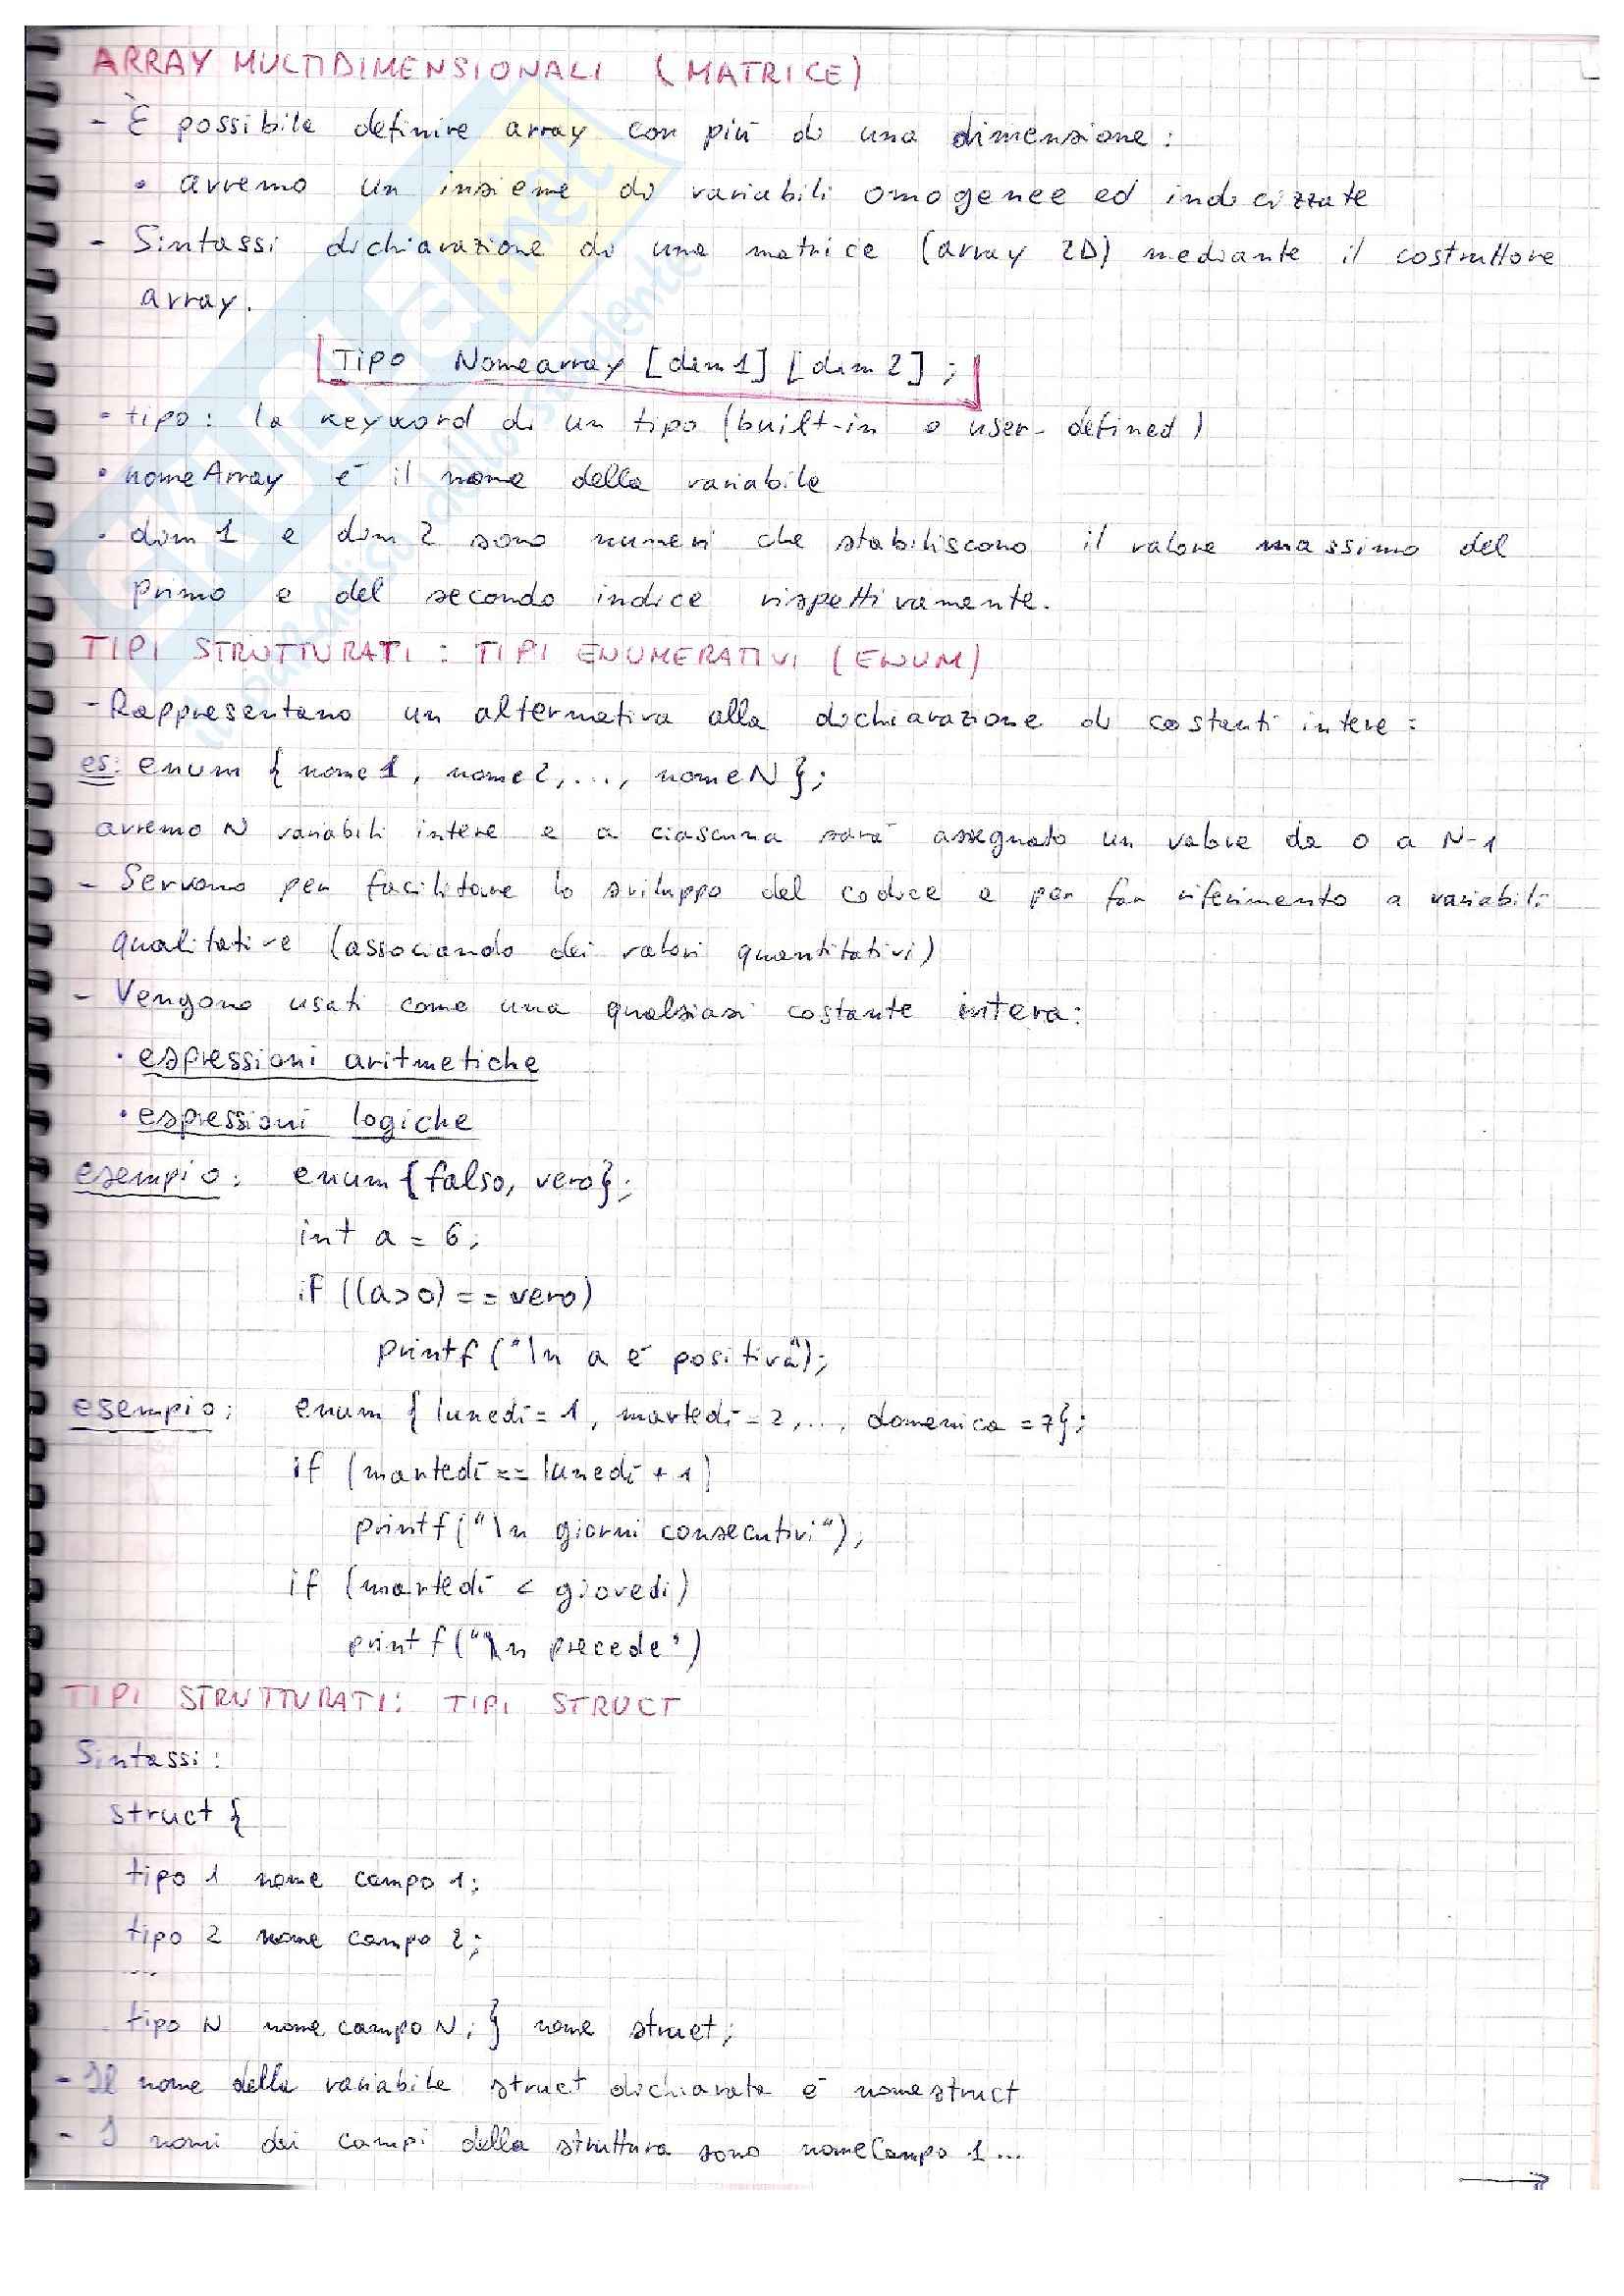 ARRAY MULTIDIMENSIONALI (MATRICE)
- È possibile definire array con più di una dimensione:
• avremo un insieme di variabili omogenee ed indicizzate
- Sintassi dichiarazione di una matrice (array 2D) mediante il costruttore
array.
Tipo Nomearray [dim1] [dim2];
• tipo: la keyword di un tipo (built-in o user-defined)
• nomeArray è il nome della variabile
• dim 1 e dim 2 sono numeri che stabiliscono il valore massimo del
primo e del secondo indice rispettivamente.
TIPI STRUTTURATI: TIPI ENUMERATIVI (ENUM)
- Rappresentano un alternativa alla dichiarazione di costanti intere:
es: enum { nome1, nome2, ..., nomeN };
avremo N variabili intere e a ciascuna sarà assegnato un valore da 0 a N-1
- Servono per facilitare lo sviluppo del codice e per far riferimento a variabili
qualitative (associando dei valori quantitativi)
- Vengono usati come una qualsiasi costante intera:
• espressioni aritmetiche
• espressioni logiche
esempio: enum {falso, vero};
int a = 6;
if ((a>0) == vero)
printf ("\n a è positiva");
esempio: enum { lunedì=1, martedì=2, ..., domenica=7};
if (martedì == lunedì + 1)
printf ("\n giorni consecutivi");
if (martedì < giovedì)
printf ("\n precede")
TIPI STRUTTURATI: TIPI STRUCT
Sintassi:
struct {
tipo 1 nome campo 1;
tipo 2 nome campo 2;
....
tipo N nome campo N; } nome struct;
- Il nome della variabile struct dichiarata è nomestruct
- I nomi dei campi della struttura sono nomeCampo 1...